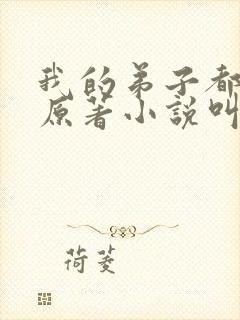 我的弟子都
原著小說叫
荷菱